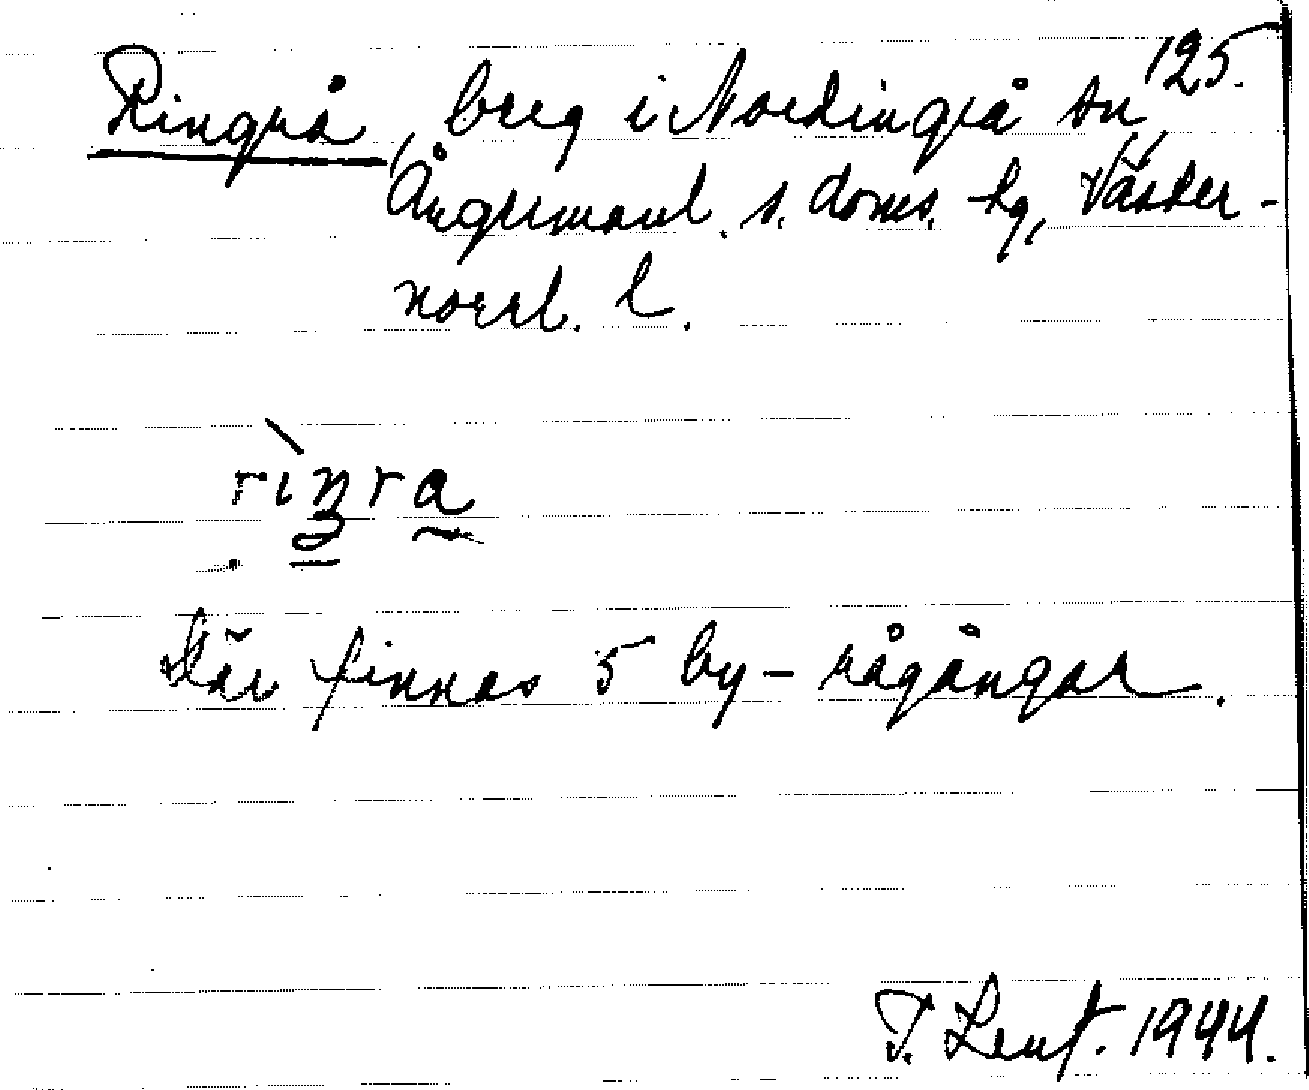 125.
Ringrå, berg i Nordingrå sn,
Ångermanl. s. doms. hg, Väster-
norrl. l.
Här finnas 5 by-rågångar.
1944.